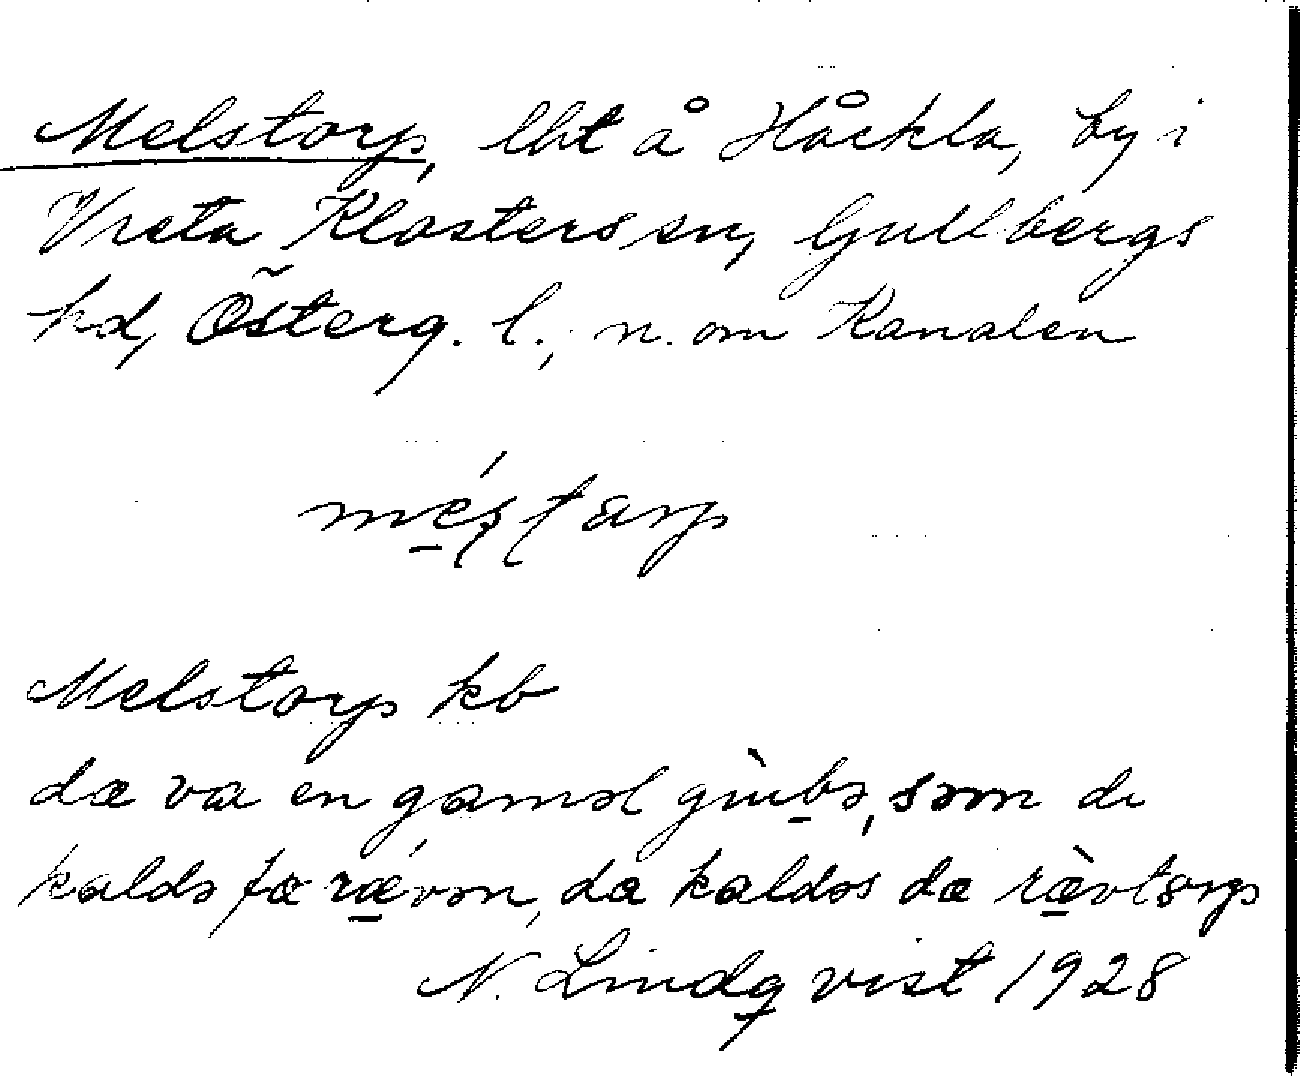 Melstorp, lht å Håckla, by i
Vreta Klosters sn, Gullbergs
hd, Österg. l., n. om Kanalen
Melstorp kb
dæ va en gaməl gùbə, səm di
kaldə fæ rǽvən, da kaldəs dæ rævtarp
N. Lindqvist 1928